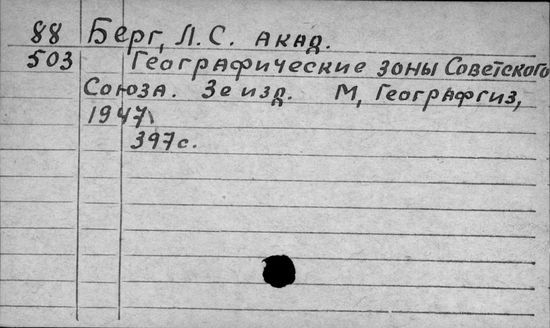 88 Берг, Л.С. акад.
503 Географические зоны Советского
Союза. 3е изд. М, Географгиз,
1947
397с.